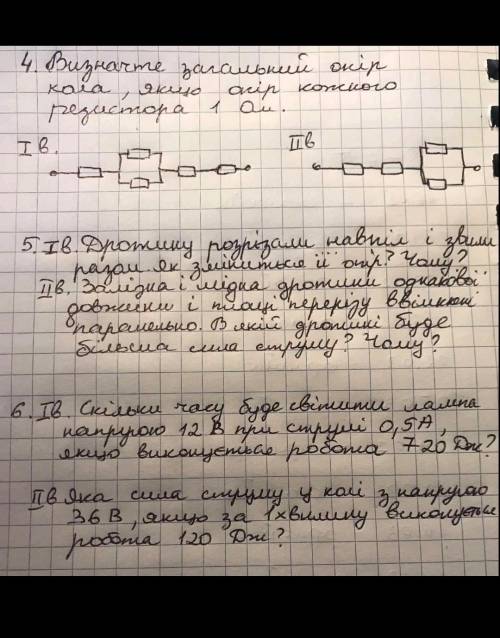 4. Визначте загальний опір
кола, якщо опір кожного
резистора 1 Ом.
Ів.
ІІв
5. Ів. Дротину розрізали навпіл і звили
разом. Як зміниться її опір? Чому?
ІІв. Залізна і мідна дротини однакової
довжини і площі перерізу ввімкнені
паралельно. В якій дротині буде
більша сила струму? Чому?
6. Ів. Скільки часу буде світити лампа
напругою 12 В при струмі 0,5А,
якщо виконується робота 720 Дж?
ІІв Яка сила струму у колі з напругою
36 В, якщо за 1 хвилину виконується
робота 120 Дж?